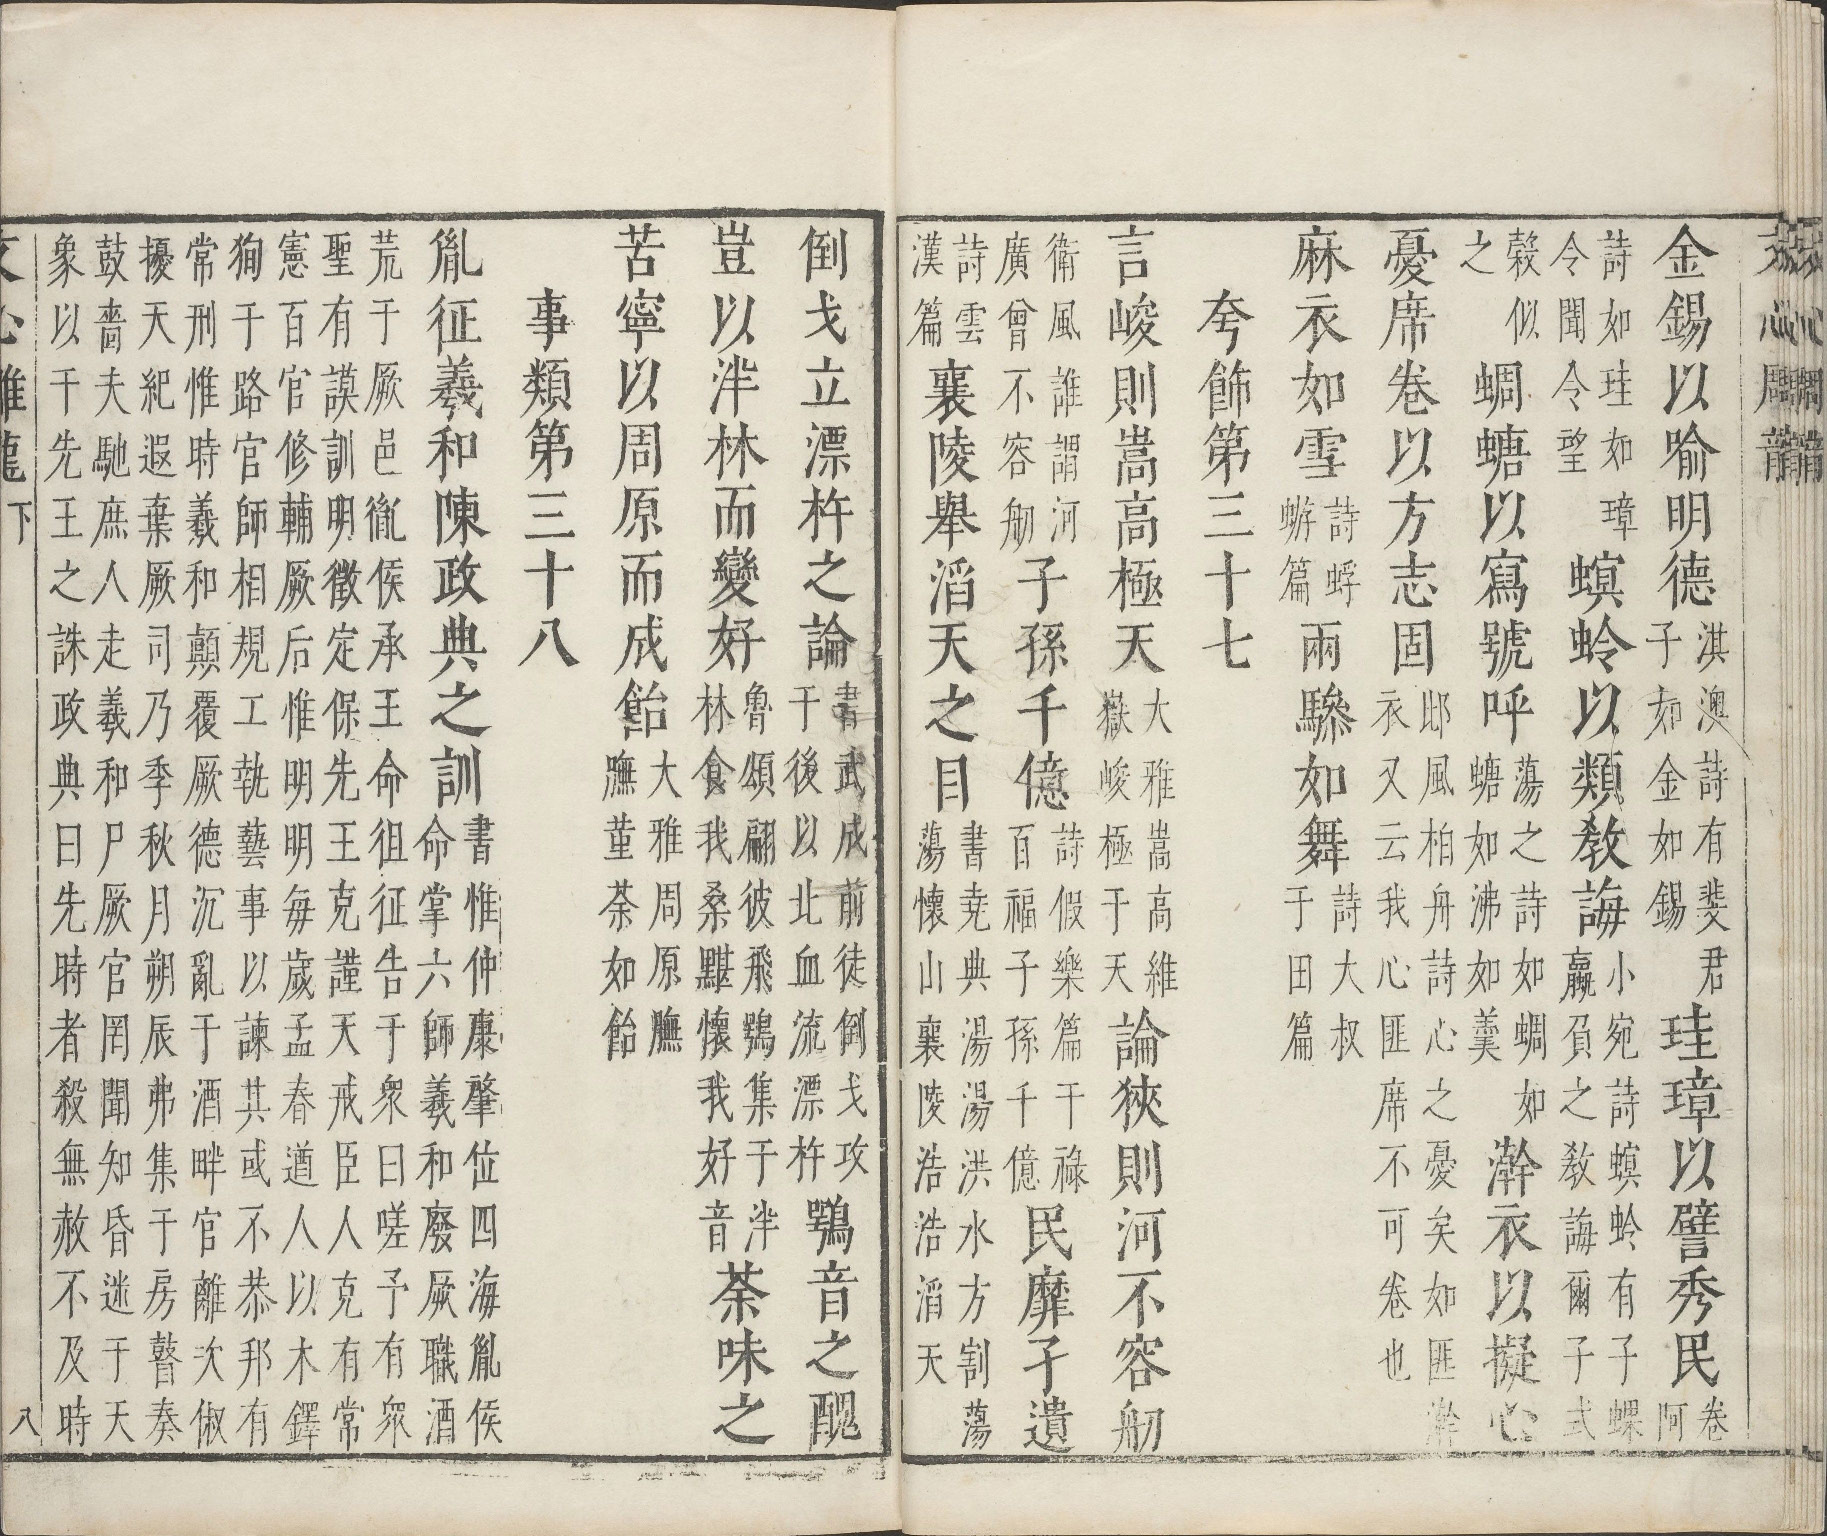 金錫以喻明德淇澳詩有斐君子如金如錫珪璋以譬秀民卷阿
詩如珪如璋令聞令望螟蛉以類教誨小宛詩螟蛉有子蜾蠃負之教誨爾子式
穀似之蜩螗以寫號呼蕩之詩如蜩如螗如沸如羹澣衣以擬心
憂席卷以方志固邶風柏舟詩心之憂矣如匪澣衣又云我心匪席不可卷也
麻衣如雪詩蜉蝣篇兩驂如舞詩大叔于田篇
夸飾第三十七
言峻則嵩高極天大雅嵩高維嶽峻極于天論狹則河不容舠
衛風誰謂河廣曾不容舠子孫千億詩假樂篇干祿百福子孫千億民靡孑遺
詩雲漢篇襄陵舉滔天之目書堯典湯湯洪水方割蕩蕩懷山襄陵浩浩滔天
倒戈立漂杵之論書武成前徒倒戈攻于後以北血流漂杵鴞音之醜
豈以泮林而變好魯頌翩彼飛鴞集于泮林食我桑黮懷我好音荼味之
苦寧以周原而成飴大雅周原膴膴菫荼如飴
事類第三十八
胤征羲和陳政典之訓書惟仲康肇位四海胤侯命掌六師羲和廢厥職酒
荒于厥邑胤侯承王命徂征告于眾曰嗟予有眾
聖有謨訓明徵定保先王克謹天戒臣人克有常
憲百官修輔厥后惟明明每歲孟春遒人以木鐸
狥于路官師相規工執藝事以諫其或不恭邦有
常刑惟時羲和顛覆厥德沉亂于酒畔官離次俶
擾天紀遐棄厥司乃季秋月朔辰弗集于房瞽奏
鼓嗇夫馳庶人走羲和尸厥官罔聞知昏迷于天
象以干先王之誅政典曰先時者殺無赦不及時
文心雕龍下 八